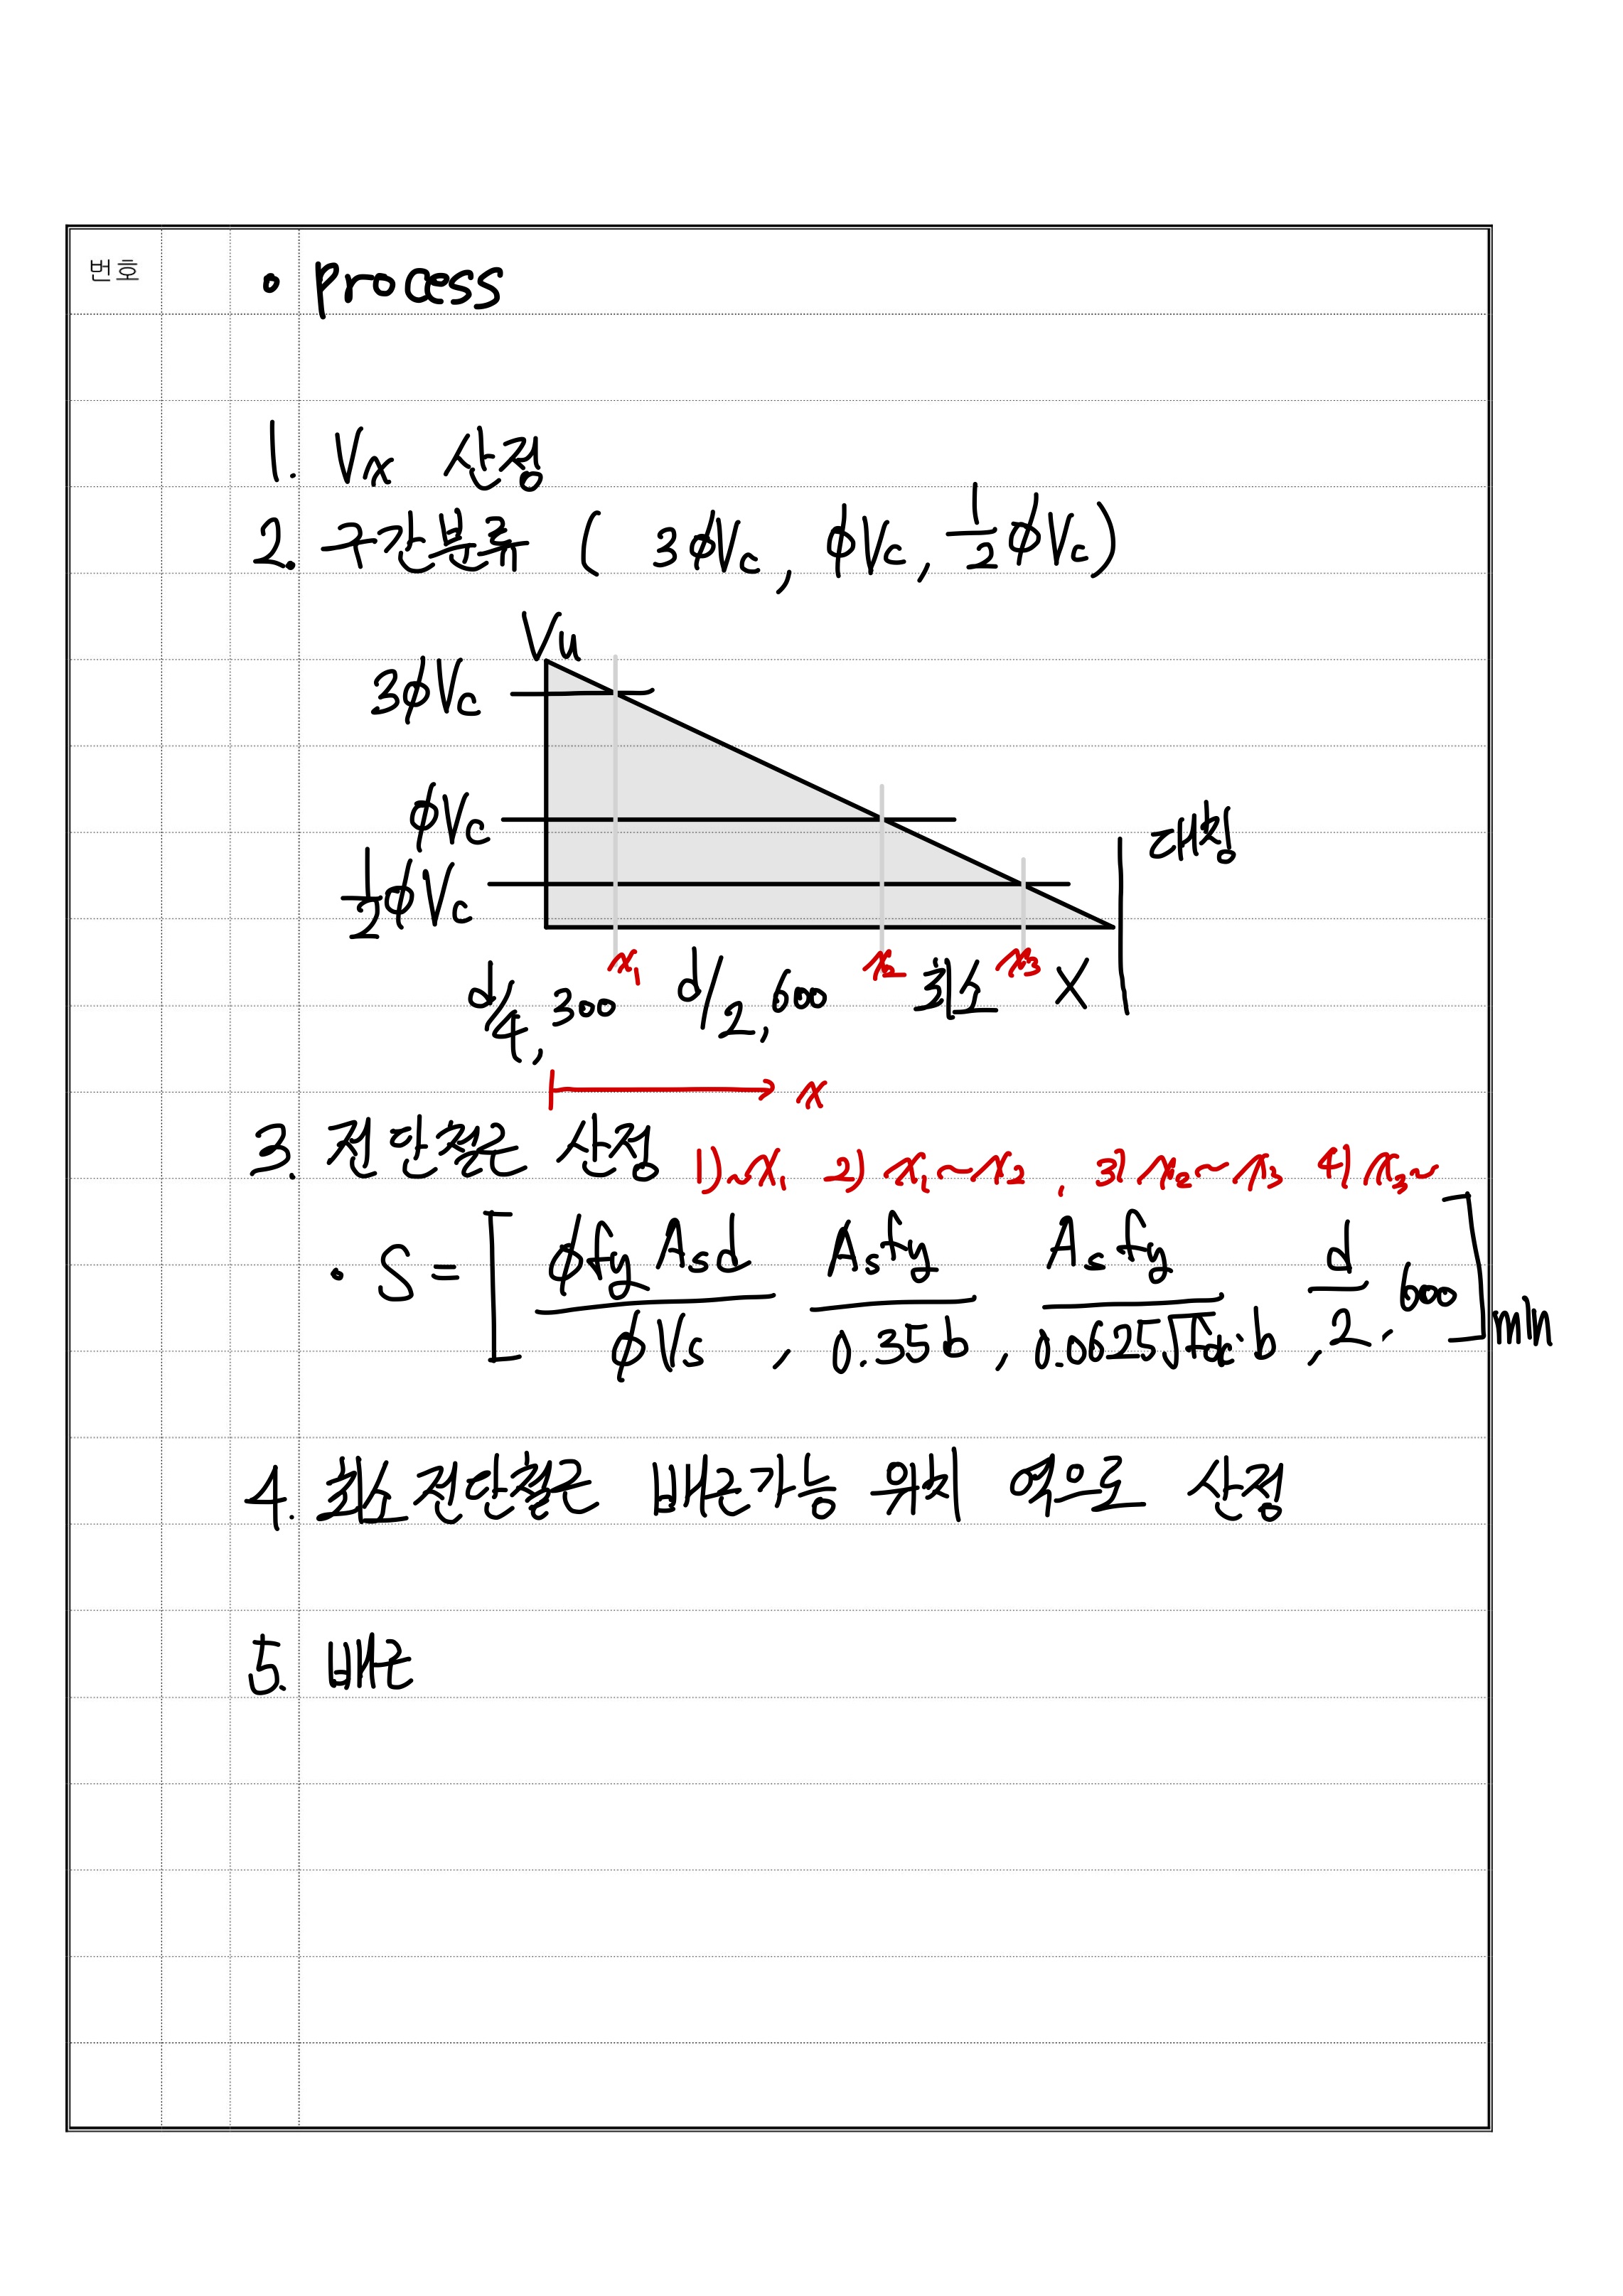 번호
• process
1. Vx 산정
2. 구간분류 ( 3φVc, φVc, 1/2 φVc)
Vu
3φVc
φVc
1/2 φVc
대칭
x1 x2 x3
d/4, 300 d/2, 600 최소 X
x
3. 전단철근 산정 1) ~x1 2) x1~x2, 3) x2~x3 4) x3~
• S = [ φfyAsd / φVs , Asfy / 0.35b , Asfy / 0.0625√fck·b , d/2, 600 ]min
4. 최소전단철근 배근가능 위치 역으로 산정
5. 배근